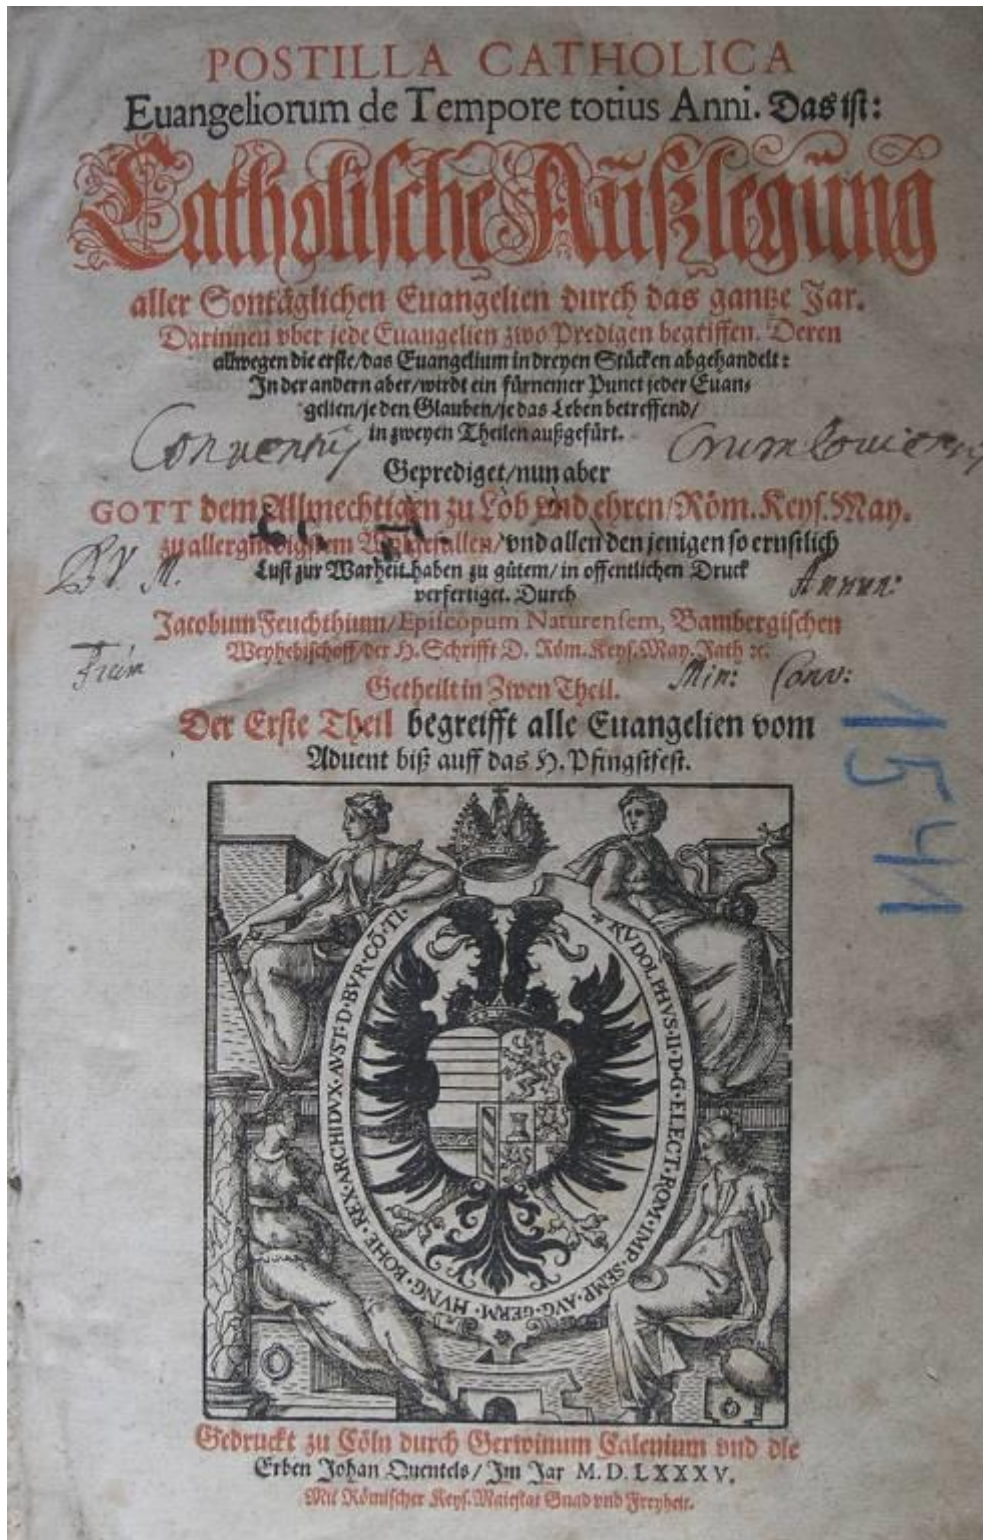 POSTILLA CATHOLICA
Euangeliorum de Tempore totius Anni. Das ist:
Catholische Außlegung
aller Sontäglichen Euangelien durch das gantze Jar.
Darinnen vber jede Euangelien zwo Predigen begriffen. Deren
allwegen die erste/das Euangelium in dreyen Stücken abgehandelt:
In der andern aber/wirdt ein fürnemer Punct jeder Euan⸗
gelien/je den Glauben/je das Leben betreffend/
in zweyen Theilen außgefürt.
Conventus
Geprediget/nun aber
GOTT dem Allmechtigen zu Lob vnd ehren/Röm. Keys. May.
zu allergnedigstem Wolgefallen/vnd allen den jenigen so ernstlich
B V M.
Lust zur Warheit haben zu gütem/in offentlichen Druck
Annun:
verfertiget. Durch
Jacobum Feuchthium/Episcopum Naturensem, Bambergischen
Weyhebischoff/der H. Schrifft D. Röm. Keys. May. Rath ꝛc.
Min: Conv:
Getheilt in Zwen Theil.
Der Erste Theil begreifft alle Euangelien vom
Aduent biß auff das H. Pfingstfest.
1541
RVDOLPHVS·II·D·G·ELECT·ROM·IMP·SEMP·AVG·GERM·HVNG·BOHE·REX·ARCHIDVX·AVST·D·BVR·CŌ·TI·
Gedruckt zu Cöln durch Gerwinum Calenium vnd die
Erben Johan Quentels/Im Jar M.D.LXXXV.
Mit Römischer Keys. Maiestat Gnad vnd Freyheit.